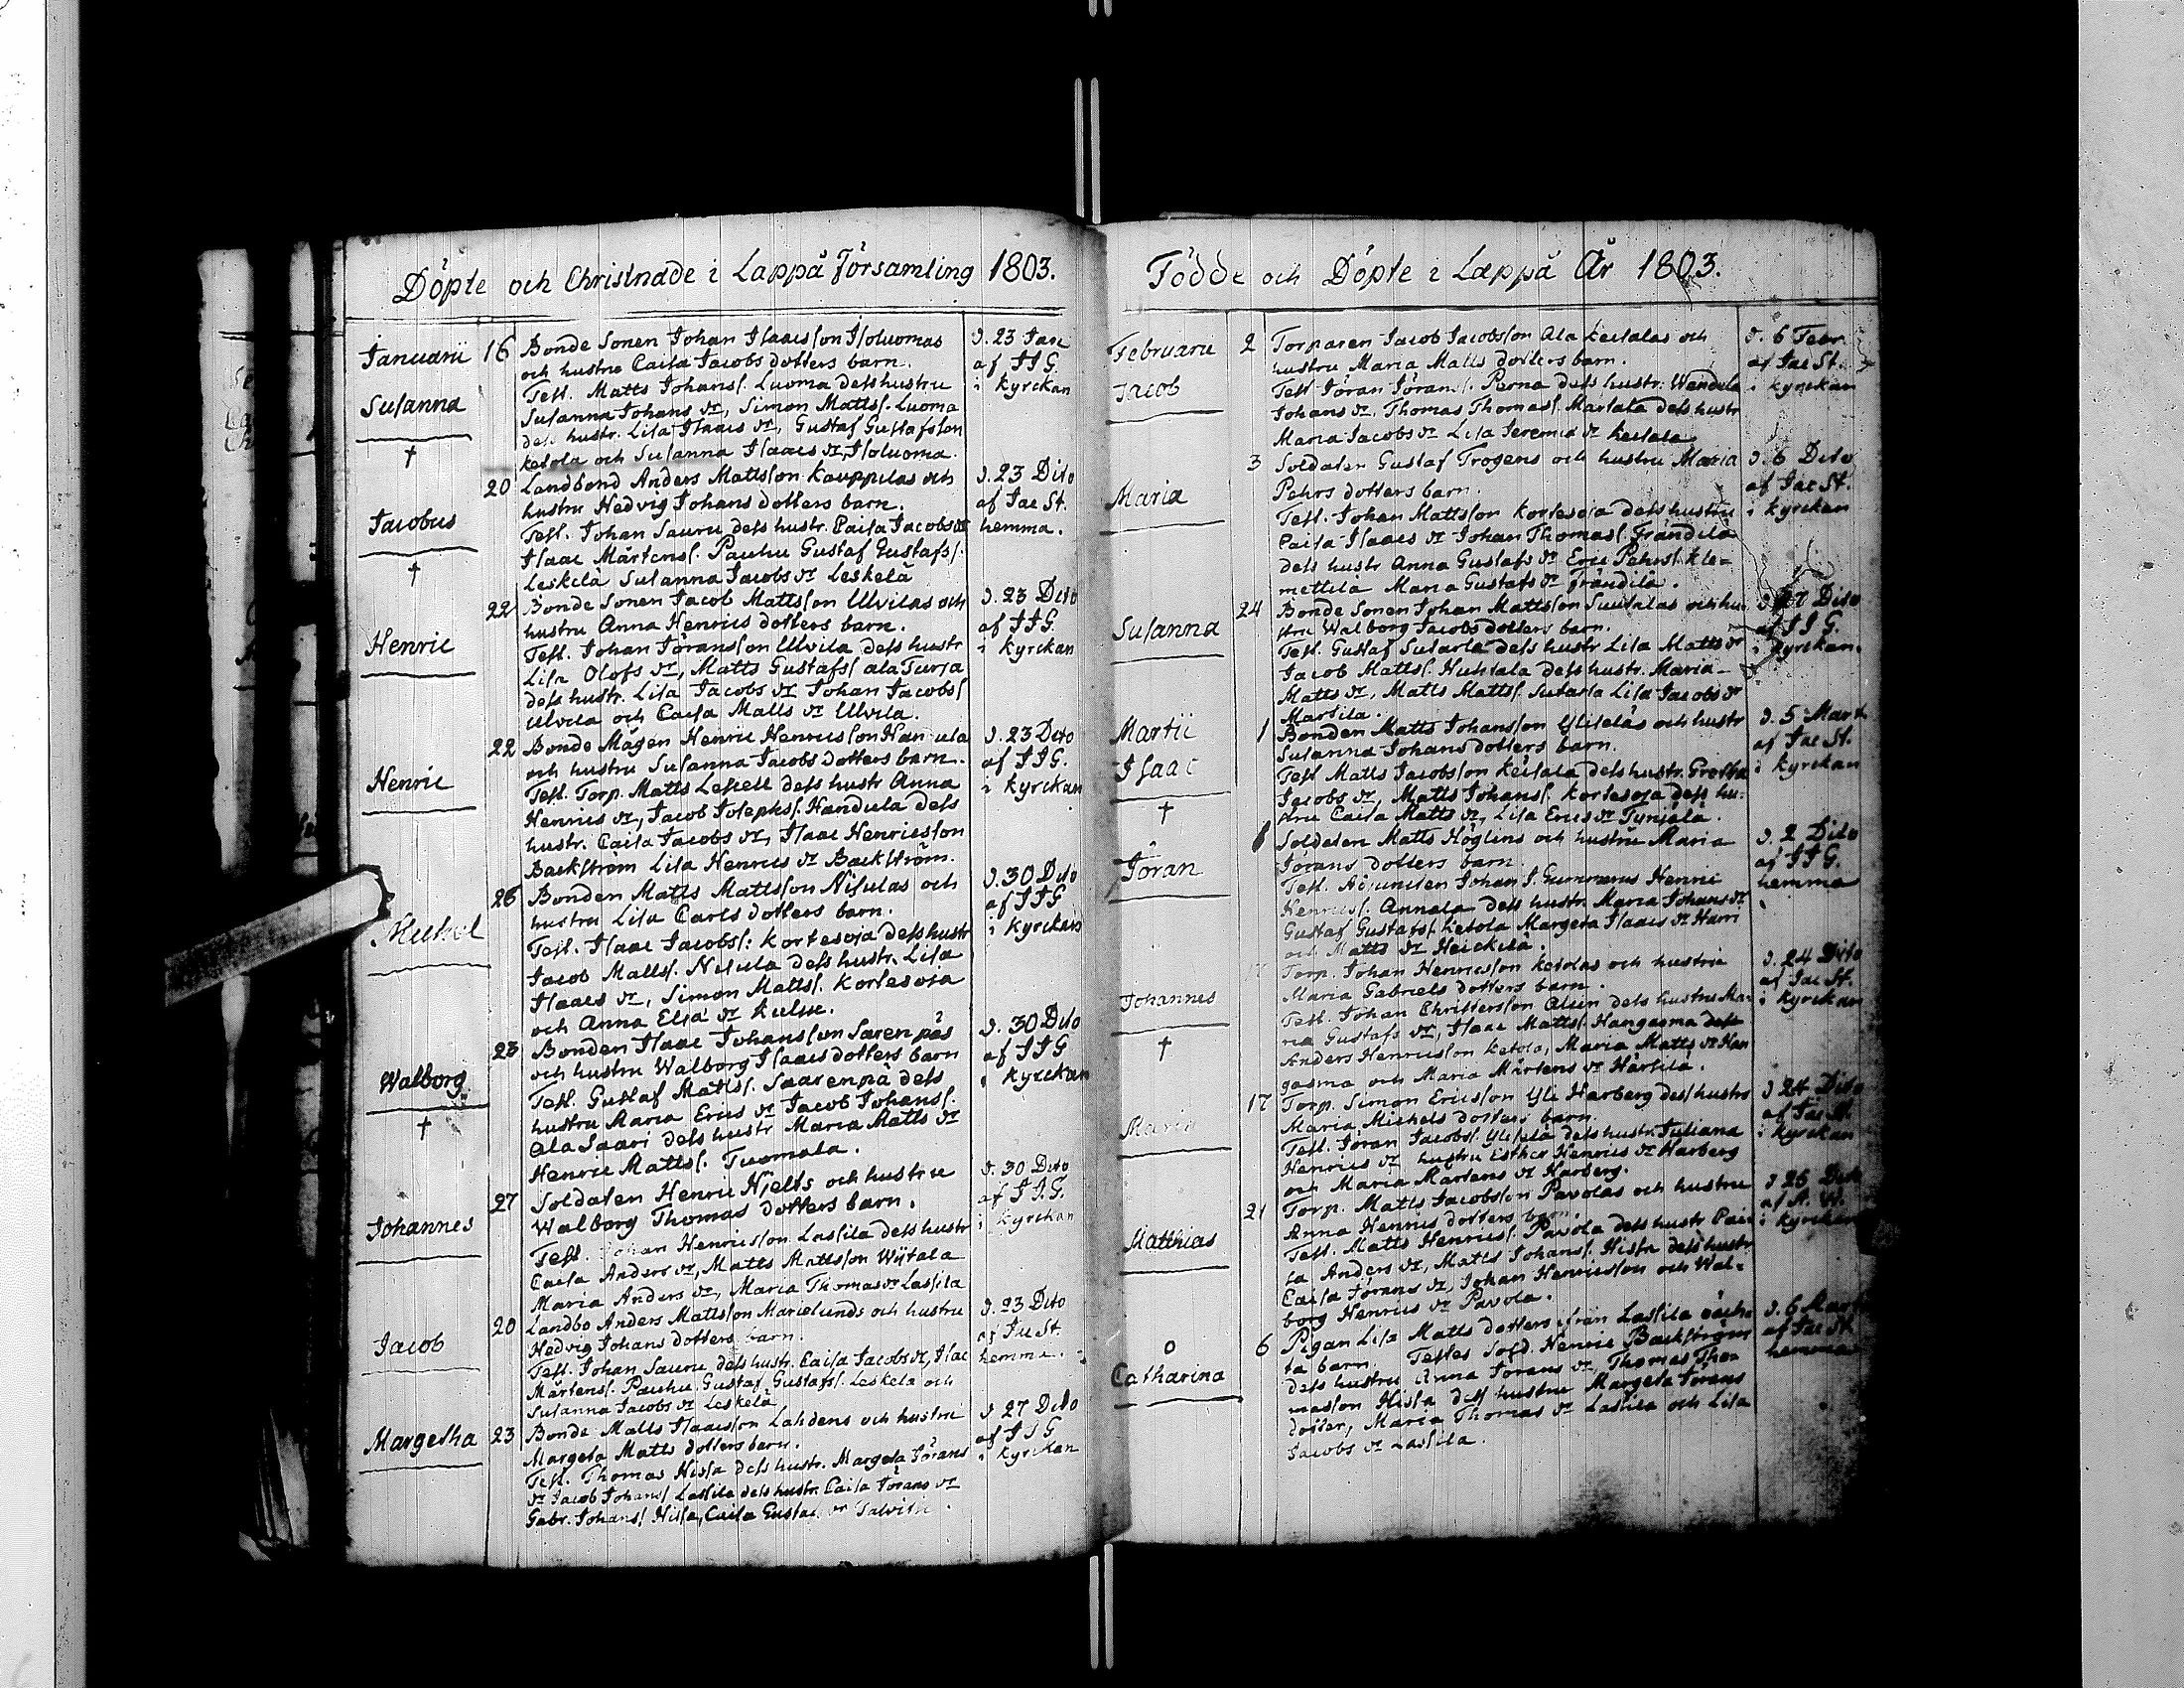 Döpte och Christnade i Lappå Församling 1803.
Januarii 16 Bonde Sonen Johan Isaacsson Isoluomas d. 23 Janr
och hustru Caisa Jacobs dotters barn. af JJG.
Test. Matts Johanss. Luoma dess hustru i kyrckan
Susanna
Susanna Johans dr, Simon Mattss. Luoma
dess hustr. Lisa Isaacs dr, Gustaf Gustafsson
† Ketola och Susanna Isaacs dr Isoluoma.
20 Landbond Anders Mattsson Kauppilas och d. 23 Dito
hustru Hedvig Johans dotters barn. af Jac St.
Jacobus Test. Johan Sauru dess hustr. Caisa Jacobs dr hemma.
Isaac Mårtenss. Pauhu Gustaf Gustafss.
† Leskelä Susanna Jacobs dr Leskelä
22 Bonde Sonen Jacob Mattsson Ulvilas och d. 23 Dito
hustru Anna Henrics dotters barn. af JJG.
Henric Test. Johan Göransson Ulvila dess hustr i kyrckan
Lisa Olofs dr, Matts Gustafss. ala Turja
dess hustr. Lisa Jacobs dr Johan Jacobss
Ulvila och Caisa Matts dr Ulvila.
22 Bonde Mågen Henric Henricsson Han ula d. 23 Dito
och hustru Susanna Jacobs dotters barn. af JJG.
Henric Test. Torp. Matts dess hustr Anna i kyrckan
Henrics dr, Jacob Josephss. Handula dess
hustr. Caisa Jacobs dr, Isaac Henricsson
Backström Lisa Henrics dr Backström.
26 Bonden Matts Mattsson Nisulas och d. 30 Dito
hustru Lisa Carls dotters barn. af JJG
Michel Test. Isaac Jacobss: Kortesoja dess hustr i kyrckan
Jacob Mattss. Nisula dess hustr. Lisa
Isaacs dr, Simon Mattss. Kortesoja
och Anna Elsa dr
23 Bonden Isaac Johansson Sarenpäs d. 30 Dito
och hustru Walborg Isaacs dotters barn af JJG
Walborg Test. Gustaf Mattss. Saarenpä dess i kyrckan
† hustru Maria Erics dr Jacob Johanss.
Ala Saari dess hustr Maria Matts dr
Henric Mattss. Tuomala.
27 Soldaten Henric Hjelts och hustru d. 30 Dito
Walborg Thomas dotters barn. af JJ.G.
Johannes Test. Johan Henricsson Lassila dess hustr i kyrckan
Caisa Anders dr, Matts Mattsson Wijtala
Maria Anders dr, Maria Thomas dr Lassila
20 Landbo Anders Mattsson Marielunds och hustru d. 23 Dito
Jacob Hedvig Johans dotters barn. af Jac St.
Test. Johan Sauru dess hustr. Caisa Jacobs dr, Isac hemma.
Mårtenss. Pauhu Gustaf Gustafss. Leskela och
Susanna Jacobs dr Leskelä
Margetha 23 Bonde Matts Isaacsson Lahdens och hustru d 27 Dito
Margeta Matts dotters barn. af JJG
Test. Thomas Hissa dess hustr. Margeta Görans i kyrckan
dr Jacob Johanss Lassila dess hustr. Caisa Görans dr
Gabr. Johanss. Hissa, Caisa Gustaf dr Talvitie.
Födde och Döpte i Lappå År 1803.
Februarii 2 Torparen Jacob Jacobsson Ala Keisalas och d. 6 Febr.
hustru Maria Matts dotters barn. af Jac St.
Jacob Test Jöran Jöranss. Perna dess hustr: Wendela i kyrckan
Johans dr, Thomas Thomass. Marlata dess hustr
Maria Jacobs dr Lisa Jeremiæ dr Keisala
3 Soldaten Gustaf Trogens och hustru Maria d. 6 Dito
Maria Pehrs dotters barn. af Jac St.
Test. Johan Mattsson Kortesoja dess hustru i kyrckan
Caisa Isaacs dr Johan Thomass. Frändilä
dess hustr Anna Gustafs dr Eric Pehrss. Kle-
mettilä Maria Gustafs dr Frändilä.
24 Bonde Sonen Johan Mattsson Suutalas och hu- d. 27 Dito
Susanna stru Walborg Jacobs dotters barn. af JJG.
Test. Gustaf Sutarla dess hustr Lisa Matts dr i kyrckan.
Jacob Mattss. Huhtala dess hustr. Maria
Matts dr, Matts Mattss. Sutarla Lisa Jacobs dr
Martila.
Martii 1 Bonden Matts Johansson Yliseläs och hustr d. 5 Mart
Susanna Johans dotters barn. af Jac St.
Isaac Test Matts Jacobsson Keisala dess hustr. Gretha i kyrckan
Jacobs dr, Matts Johanss. Kortesoja dess hu-
† stru Caisa Matts dr, Lisa Erics dr Tynjälä.
1 Soldaten Matts Höglins och hustru Maria d. 2 Dito
Jöran Jörans dotters barn. af JJG.
Test. Adjuncten Johan J. Gummerus Henric hemma
Henricss. Annala dess hustr. Maria Johans dr
Gustaf Gustafss. Ketola Margeta Isaacs dr Harri
och Matts dr Heickilä.
Torp. Johan Henricsson Ketolas och hustru d. 24 Dito
Maria Gabriels dotters barn. af Jac St.
Johannes Test. Johan Christersson Alsen dess hustru Ma- i kyrckan
ria Gustafs dr, Isaac Mattss. Hangasma dess
† Anders Henricsson Ketola, Maria Matts dr Han
gasma och Maria Mårtens dr Härsilä.
17 Torp. Simon Ericsson Yli Harberg dess hustru d 24 Dito
Maria Michels dotters barn. af Jac St.
Maria Test. Jöran Jacobss. Yliselä dess hustr. Juliana i kyrckan
Henrics dr hustru Esther Henrics dr Harberg
och Maria Martens dr Harberg.
21 Torp. Matts Jacobsson Pavolas och hustru d 26 Dito
Anna Henrics dotters barn. af A. W.
Matthias Test. Matts Henricss. Pavola dess hustr Cai- i kyrckan
sa Anders dr, Matts Johanss. Hissa dess hustr
Caisa Jörans dr, Johan Henricsson och Wal-
borg Henrics dr Pavola.
o 6 Pigan Lisa Matts dotters ifrån Lassila oächta d. 6 Mart
ta barn. Testes Sold. Henric Backström af Jac St.
Catharina dess hustru Anna Jorans dr, Thomas Tho- hemma
masson Hissa dess hustru Margeta Jörans
dotter, Maria Thomas dr Lassila och Lisa
Jacobs dr Lassila.